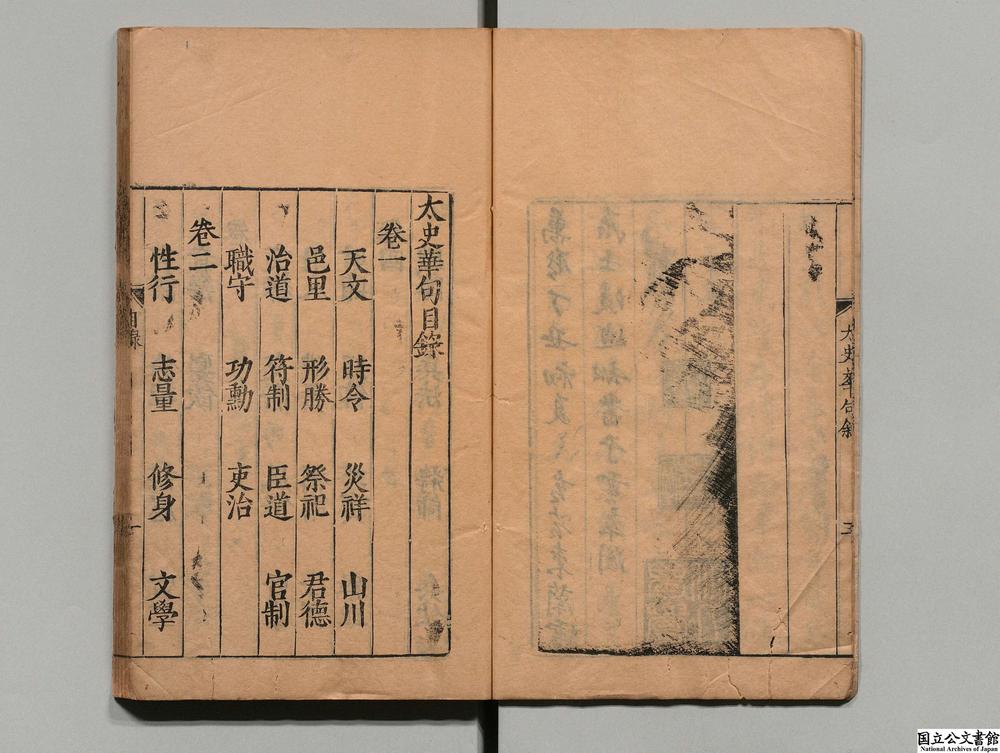 太史華句敘
五
太史華句目錄
卷一
天文 時令 災祥 山川
邑里 形勝 祭祀 君德
治道 符制 臣道 官制
職守 功勳 吏治
卷二
性行 志量 修身 文學
目錄
一
国立公文書館
National Archives of Japan